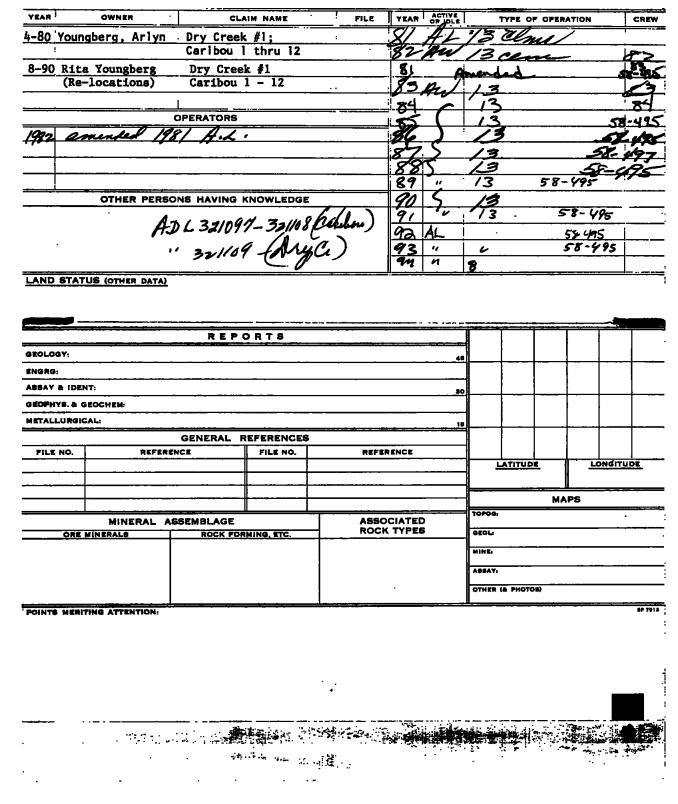 YEAR OWNER CLAIM NAME FILE YEAR ACTIVE OR IDLE TYPE OF OPERATION CREW
4-80 Youngberg, Arlyn Dry Creek #1;
Caribou 1 thru 12
8-90 Rita Youngberg Dry Creek #1
(Re-locations) Caribou 1 - 12
OPERATORS
1982 amended 1981 A.L.
OTHER PERSONS HAVING KNOWLEDGE
ADL 321097-321108 (Caribou)
" 321109 - (Dry C.)
81 AL 13 Clms
82 AW 13 clms 82
81 Amended 58-495
83 AW 13 83
84 13 84
85 13 58-495
86 13 58-495
87 13 58-497
88 13 58-495
89 " 13 58-495
90 13
91 " 13 58-495
92 AL 58-495
93 " " 58-495
94 " 8
LAND STATUS (OTHER DATA)
REPORTS
GEOLOGY: 45
ENGRG:
ASSAY & IDENT: 30
GEOPHYS. & GEOCHEM:
METALLURGICAL: 15
GENERAL REFERENCES
FILE NO. REFERENCE FILE NO. REFERENCE
LATITUDE LONGITUDE
MAPS
TOPOG:
GEOL:
MINE:
ASSAY:
OTHER (& PHOTOS)
MINERAL ASSEMBLAGE ASSOCIATED ROCK TYPES
ORE MINERALS ROCK FORMING, ETC.
POINTS MERITING ATTENTION: SP 7913